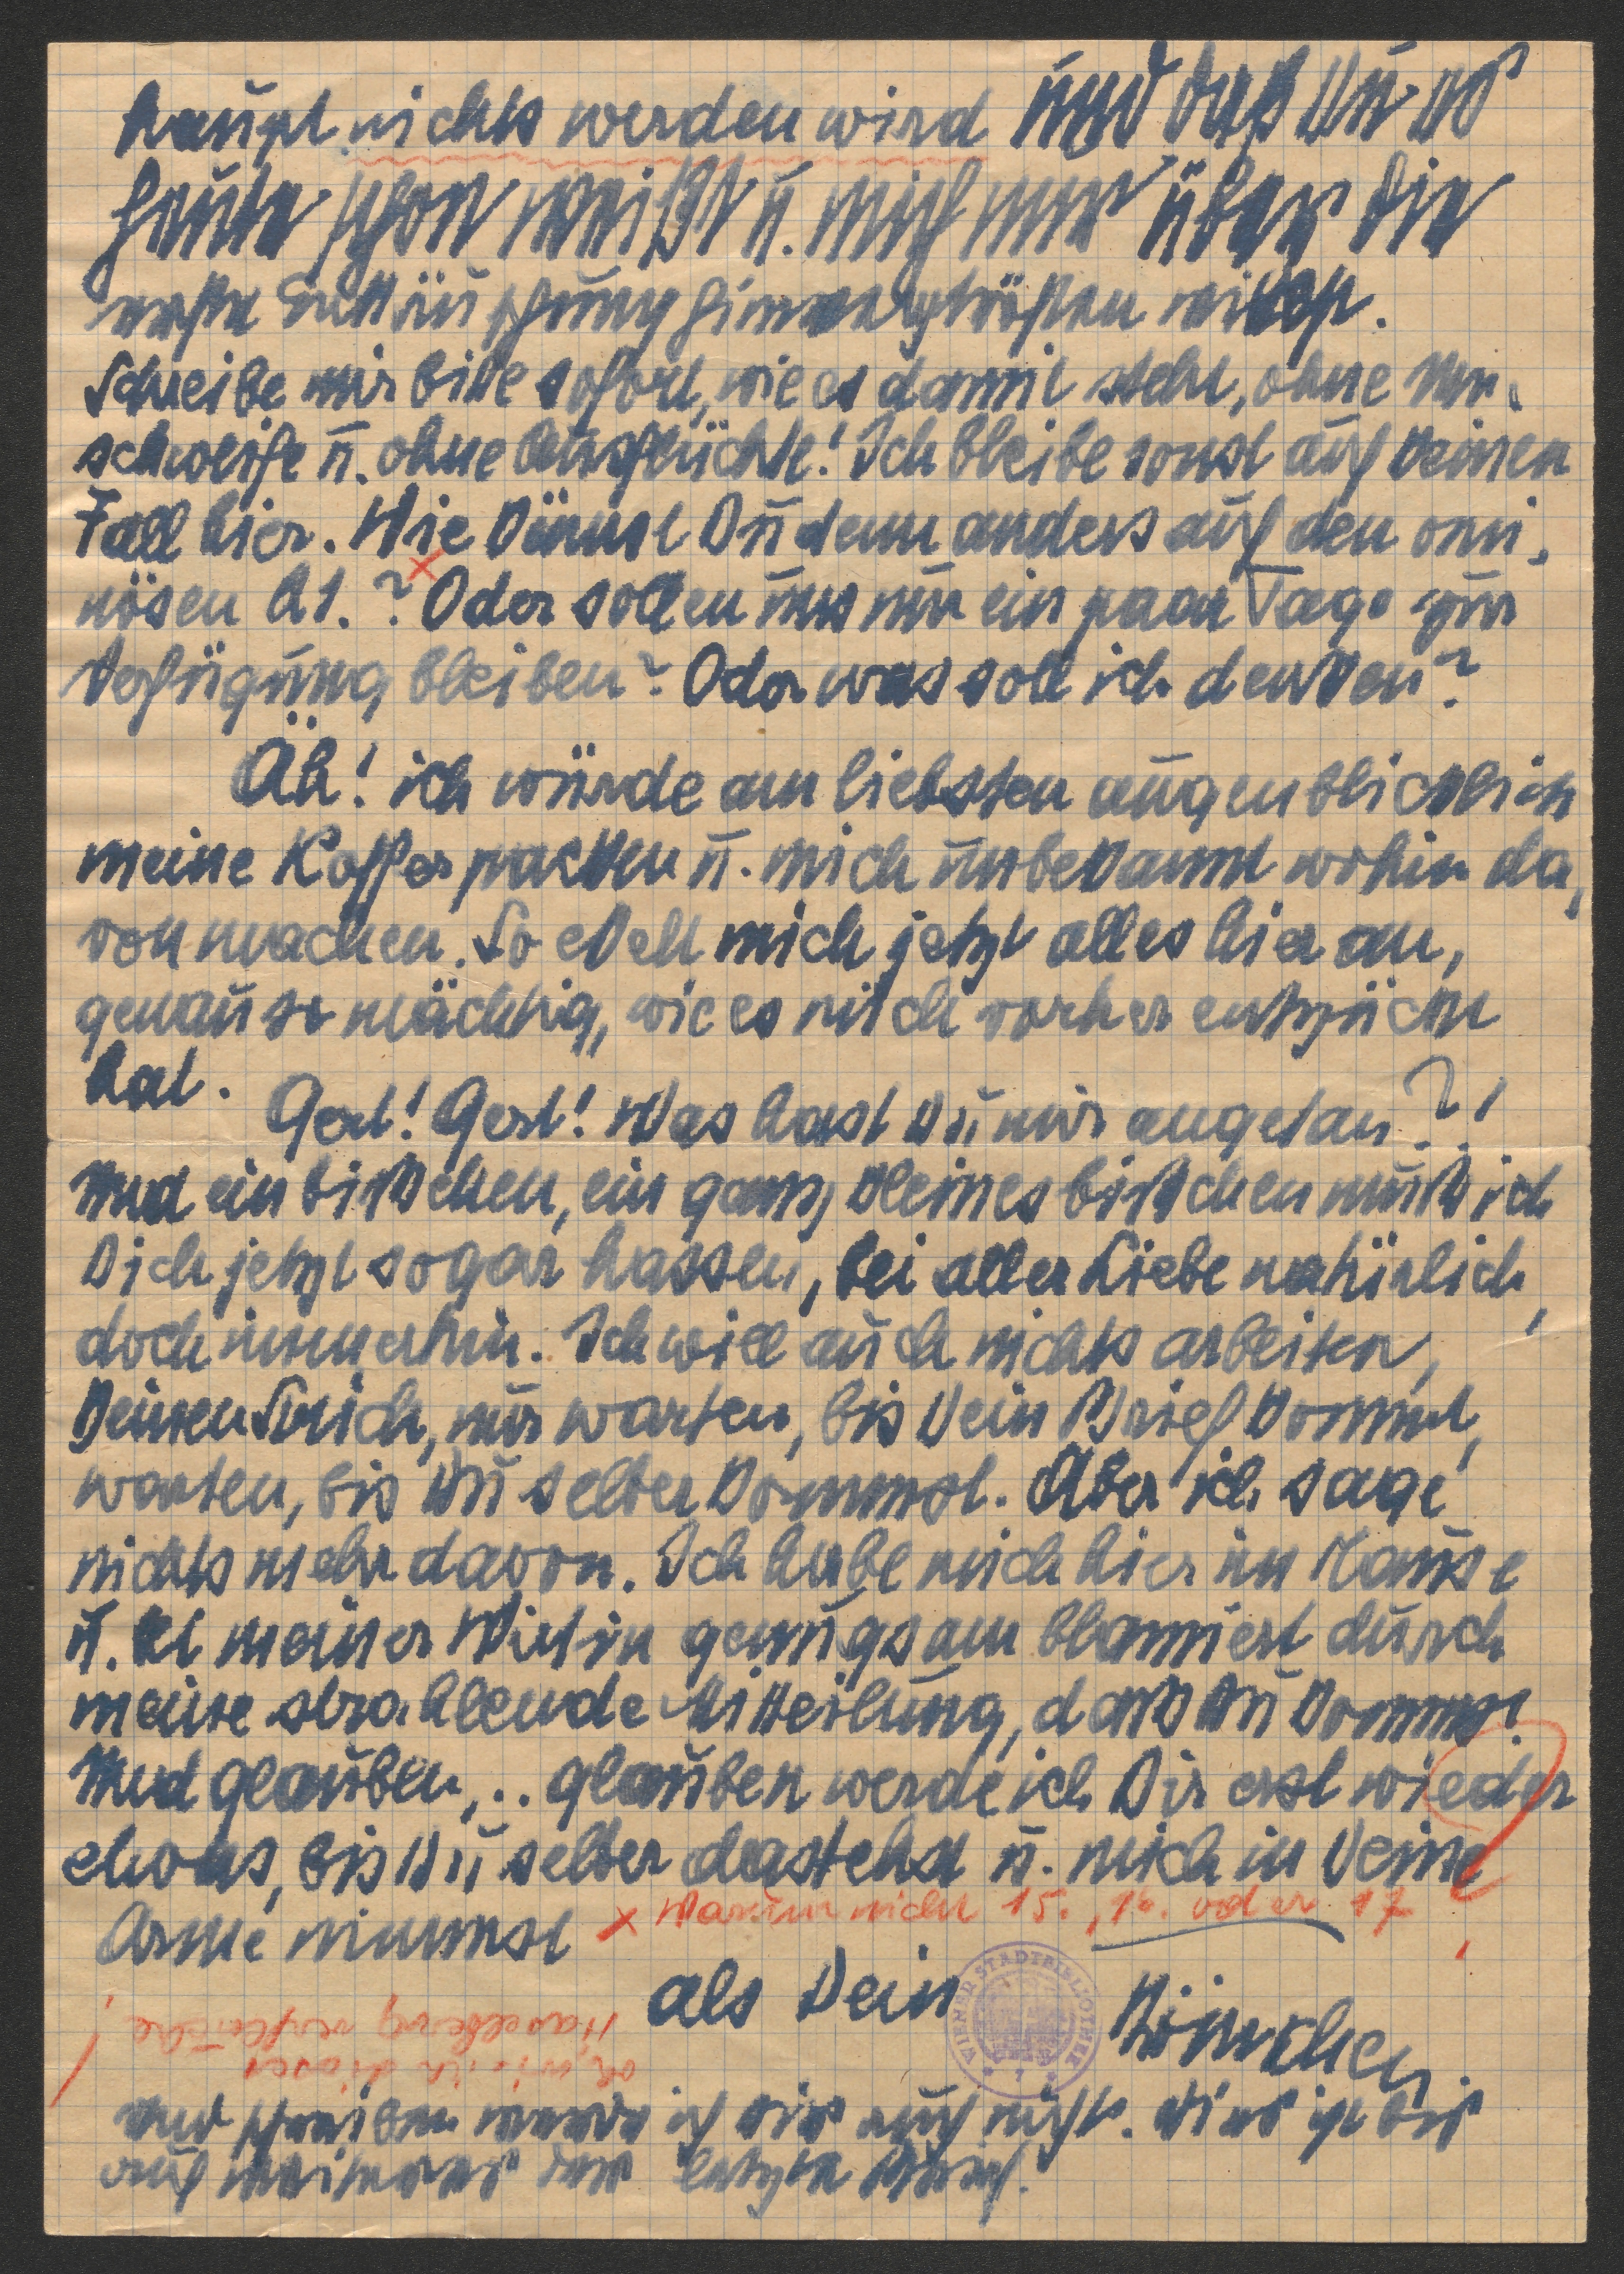 haupt nichts werden wird und daß Du es
heute schon weißt u. mich nur über die
erste Enttäuschung hinwegtrösten willst.
Schreibe mir bitte sofort, wie es damit steht, ohne Um-
schweife u. ohne Ausflüchte! Ich bleibe sonst auf keinen
Fall hier. Wie kämst Du denn anders auf den omi-
nösen 21.? Oder sollen uns nur ein paar Tage zur
Verfügung bleiben? Oder was soll ich denken?
Äh! ich würde am liebsten augenblicklich
meine Koffer packen u. mich unbekannt wohin da-
von machen. So ekelt mich jetzt alles hier an,
genauso mächtig, wie es mich vorher entzückt
hat.
Gert! Gert! Was hast Du mir angetan?!
Und ein bißchen, ein ganz kleines bißchen muß ich
Dich jetzt sogar hassen, bei aller Liebe natürlich,
doch immerhin. Ich will auch nichts arbeiten,
keinen Strich, nur warten, bis Dein Brief kommt,
warten, bis Du selber kommst. Aber ich sage
nichts mehr davon. Ich habe mich hier im Hause
u. bei meiner Wirtin genugsam blamiert durch
meine strahlende Mitteilung, daß Du kommst.
Und glauben,.. glauben werde ich Dir erst wieder
etwas, bis Du selber dastehst u. mich in Deine
Arme nimmst
x Warum nicht 15., 16. oder 17
!
als Dein
WIENER STADTBIBLIOTHEK
oh, wie ich diesen
Haselberg verfluche!
und schreiben werde ich Dir auch nicht. Dies ist bis
auf weiteres der letzte Brief.